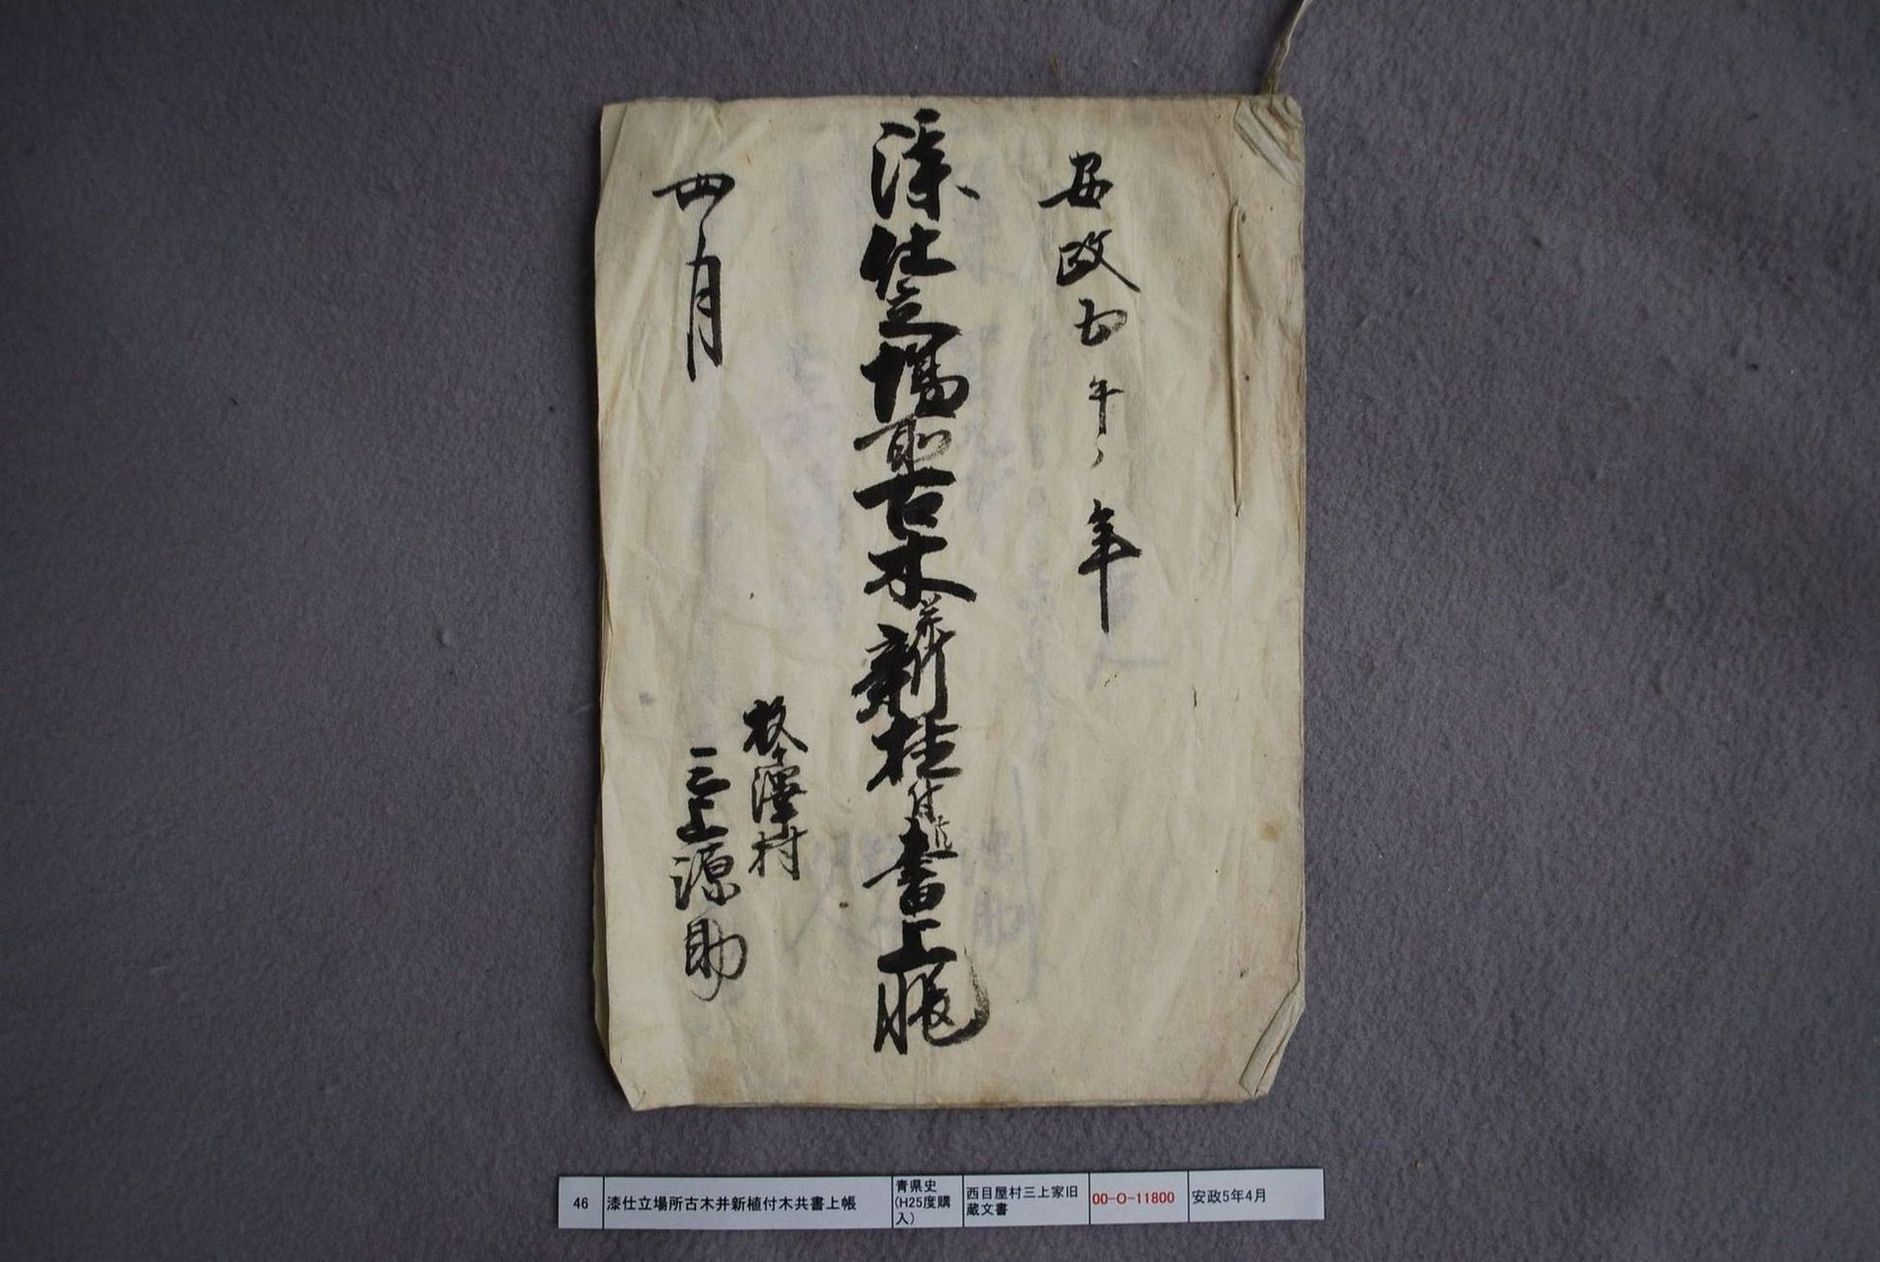 安政五午ノ年
漆仕立場所古木并新植付共書上帳
四月
村
三上源助
46 漆仕立場所古木并新植付木共書上帳 青県史(H25度購入) 西目屋村三上家旧蔵文書 00-O-11800 安政5年4月